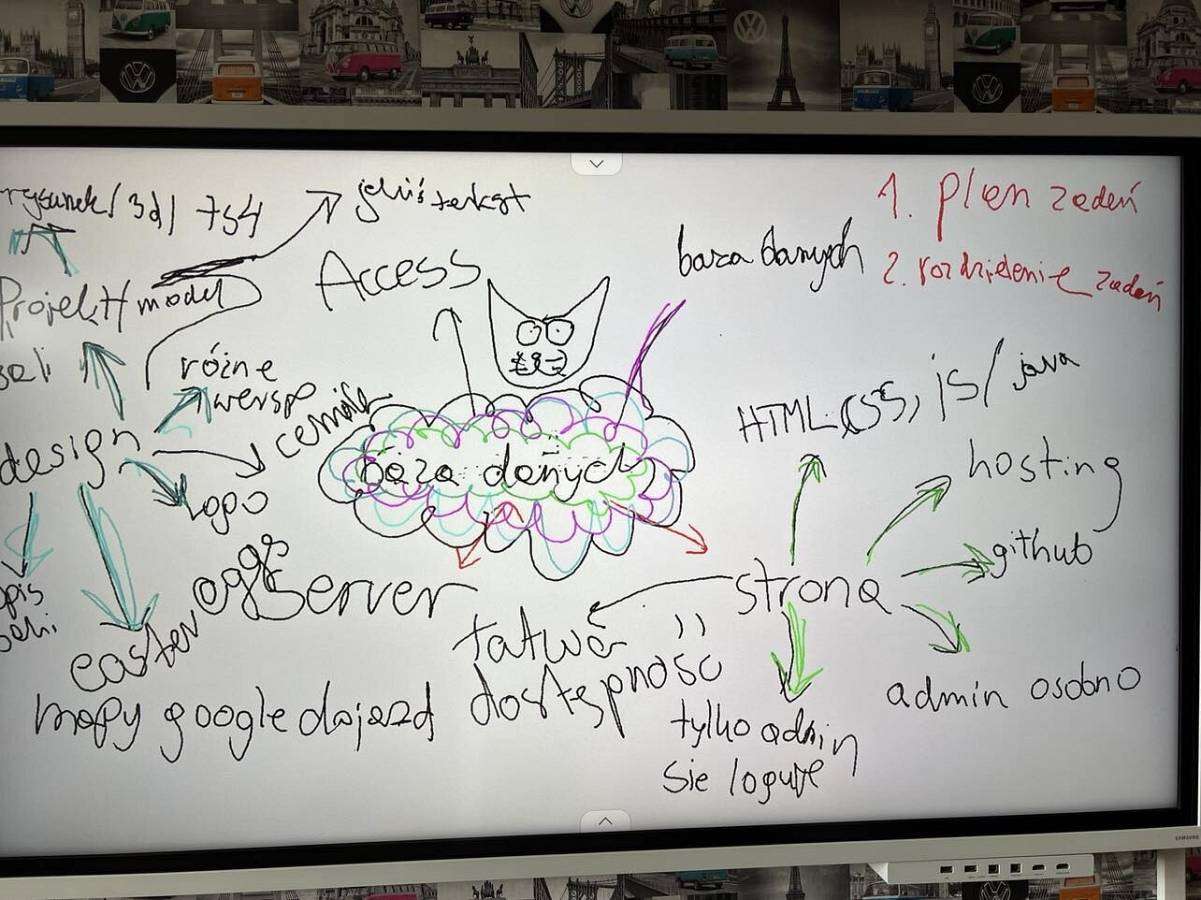 rysunek/3d/
jakiś tekst
Access
baza danych
1. Plan zadań
2. rozdzielenie zadań
Projekt/model
sali
różne
wersje
design
logo
baza danych
HTML, CSS, js/java
hosting
github
strona
admin osobno
tylko admin
się loguje
łatwa
dostępność
Server
easter eggs
mapy google dojazd
SAMSUNG